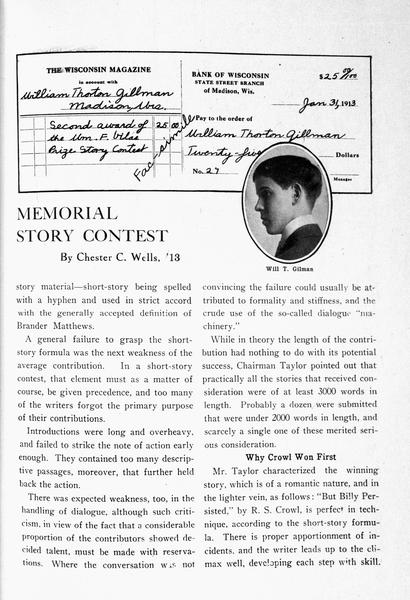 THE WISCONSIN MAGAZINE
in account with
William Thoton Gillman
Madison, Wis.
Second award of 25 00
the Wm. F. Vilas
Prize Story Contest
Fac-simile
BANK OF WISCONSIN
STATE STREET BRANCH
of Madison, Wis.
$25 00/100
Jan 31, 1913
Pay to the order of
William Thorton Gillman
Twenty-five
Dollars
No. 27
Manager
Will T. Gilman
MEMORIAL
STORY CONTEST
By Chester C. Wells, '13
story material—short-story being spelled
with a hyphen and used in strict accord
with the generally accepted definition of
Brander Matthews.
A general failure to grasp the short-
story formula was the next weakness of the
average contribution. In a short-story
contest, that element must as a matter of
course, be given precedence, and too many
of the writers forgot the primary purpose
of their contributions.
Introductions were long and overheavy,
and failed to strike the note of action early
enough. They contained too many descrip-
tive passages, moreover, that further held
back the action.
There was expected weakness, too, in the
handling of dialogue, although such criti-
cism, in view of the fact that a considerable
proportion of the contributors showed de-
cided talent, must be made with reserva-
tions. Where the conversation was not
convincing the failure could usually be at-
tributed to formality and stiffness, and the
crude use of the so-called dialogue "ma-
chinery."
While in theory the length of the contri-
bution had nothing to do with its potential
success, Chairman Taylor pointed out that
practically all the stories that received con-
sideration were of at least 3000 words in
length. Probably a dozen were submitted
that were under 2000 words in length, and
scarcely a single one of these merited seri-
ous consideration.
Why Crowl Won First
Mr. Taylor characterized the winning
story, which is of a romantic nature, and in
the lighter vein, as follows: "But Billy Per-
sisted," by R. S. Crowl, is perfect in tech-
nique, according to the short-story formu-
la. There is proper apportionment of in-
cidents, and the writer leads up to the cli-
max well, developing each step with skill.